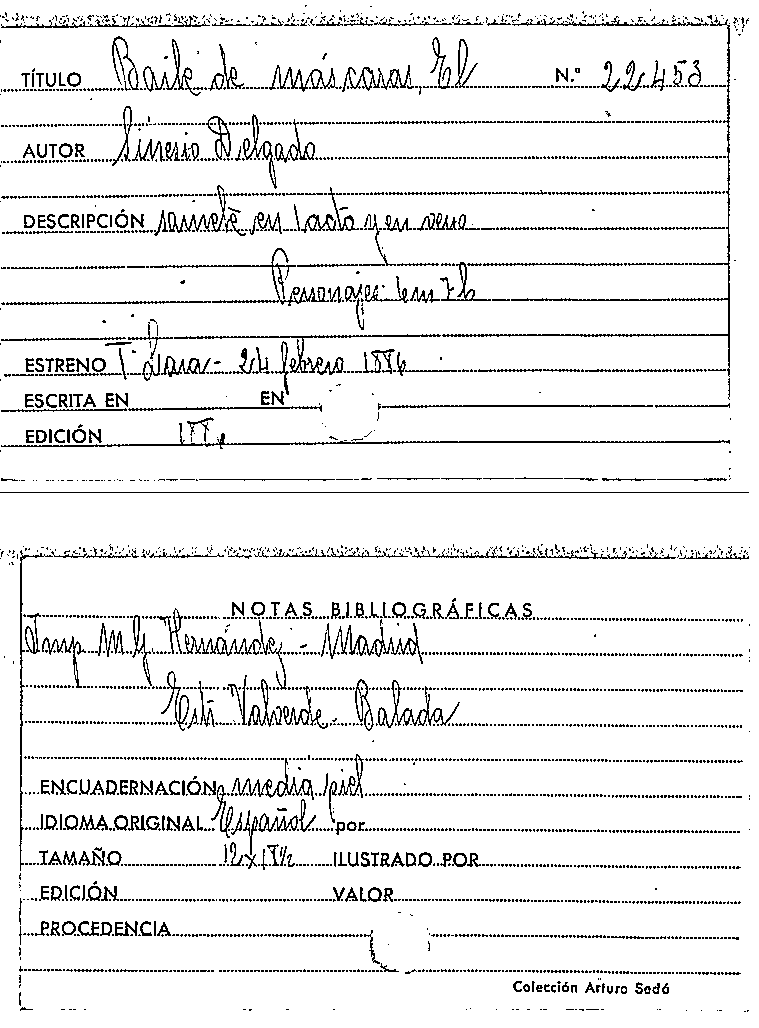 TÍTULO Baile de máscaras, El N.º 22453
AUTOR Sinesio Delgado
DESCRIPCIÓN sainete en 1 acto y en verso
Personajes: 6m 7h
ESTRENO Tº Lara - 24 febrero 1886
ESCRITA EN EN
EDICIÓN 188
NOTAS BIBLIOGRÁFICAS
Imp M G Hernández - Madrid
Valverde - Balada
ENCUADERNACIÓN media piel
IDIOMA ORIGINAL Español por
TAMAÑO 12 x 18½ ILUSTRADO POR
EDICIÓN VALOR
PROCEDENCIA
Colección Arturo Sedó